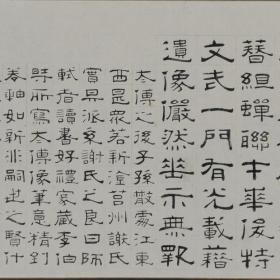 簪組蟬聯才華俊特
文武一門有光載籍
遺像儼然垂示無斁
太傅之後子孫散處江東
西是眾若新淦莒州謝氏
實派謝氏之良曰師
軾者讀書好禮家藏李伯
時所寫太傅像筆意精到
卷軸如新非嗣世之賢什